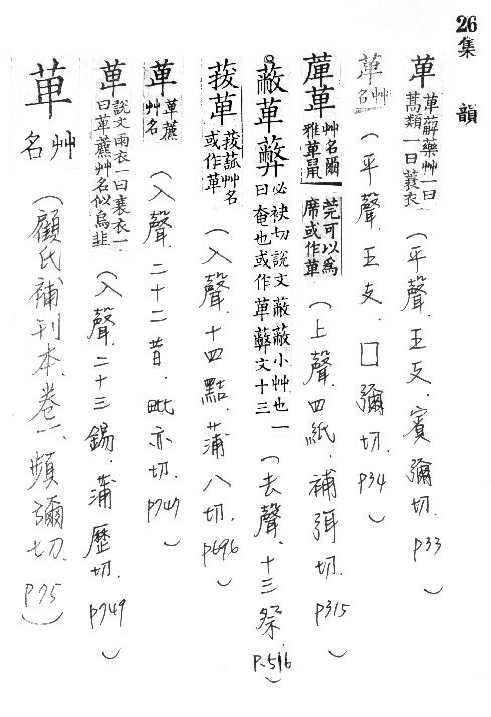 26 集韻
萆 萆薢藥艸一曰蒿類一曰蓑衣（平聲．五支．賓彌切．P33）
萆 艸名（平聲．五支．□彌切．P34）
萆 艸名爾雅萆鼠莞可以爲席或作萆（上聲．四紙．補弭切．P315）
蔽萆 必袂切說文蔽蔽小艸也一曰奄也或作萆 文十三（去聲．十三祭．P.516）
菝萆 菝䕡艸名或作萆（入聲．十四黠．蒲八切．P696）
萆 萆藨艸名（入聲．二十二昔．毗亦切．P747）
萆 說文雨衣一曰衰衣一曰萆藨艸名似烏韭（入聲．二十三錫．蒲歷切．P749）
萆 艸名（顧氏補刊本．卷一．頻彌切．P75）